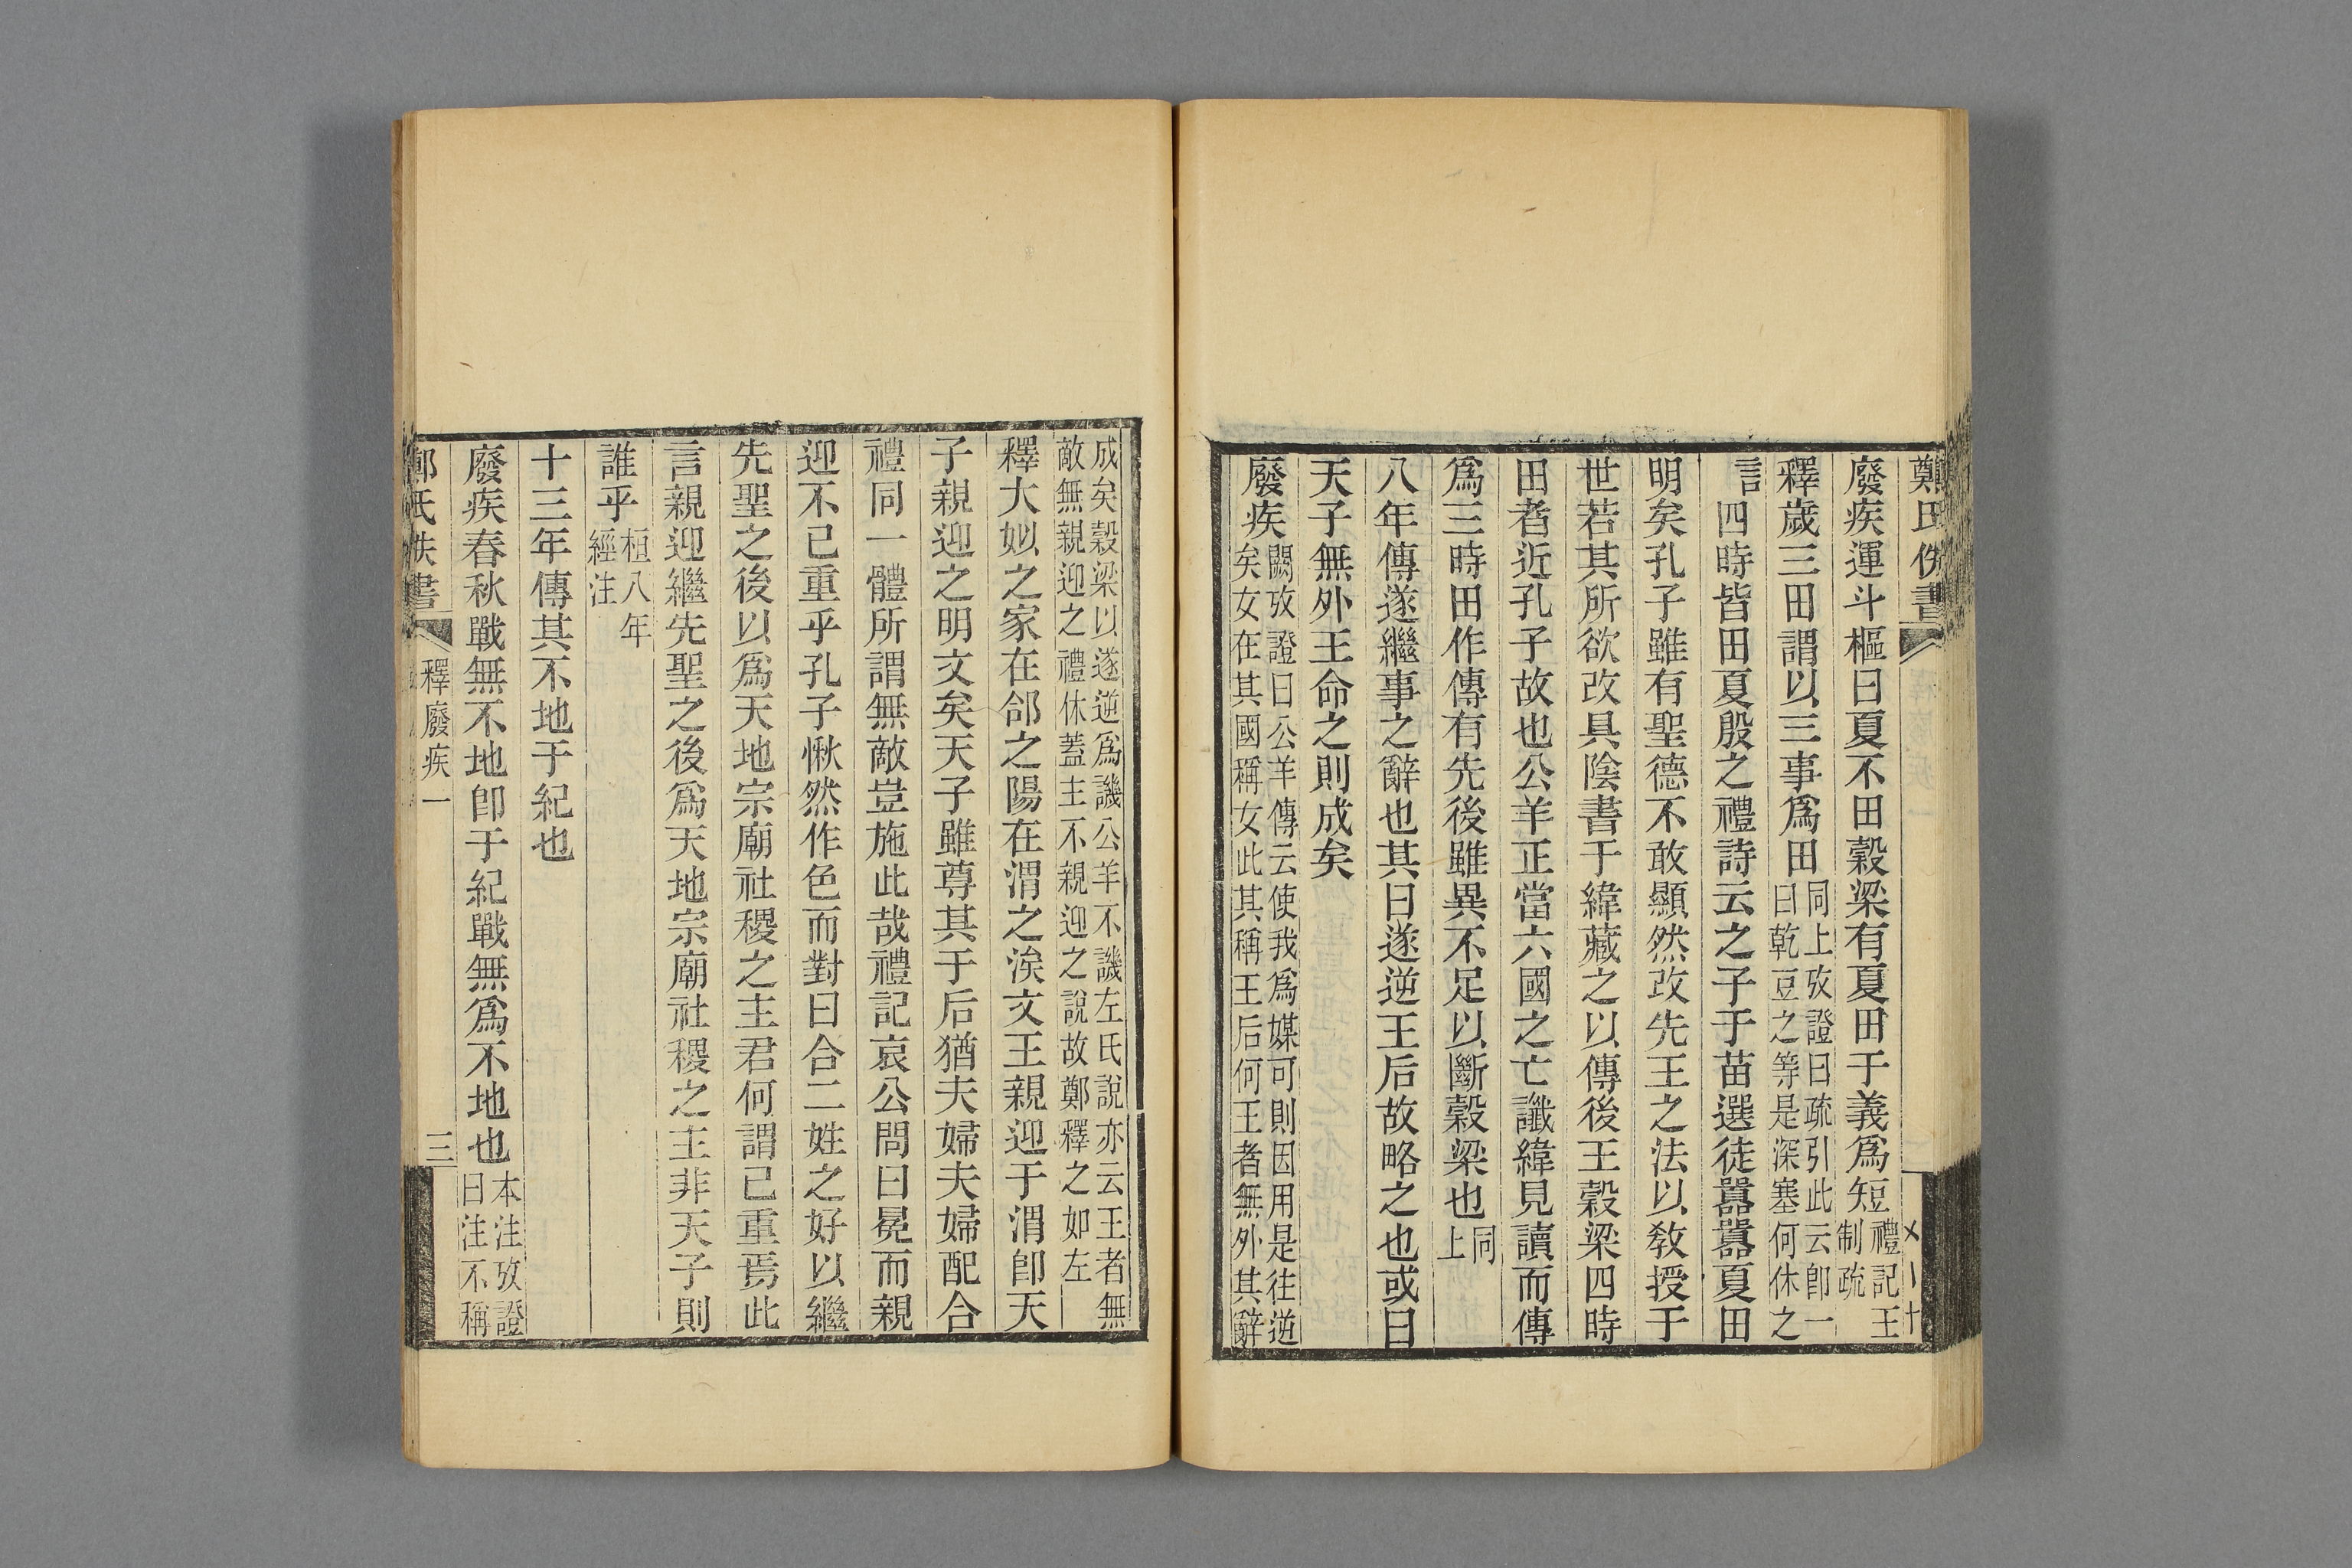 鄭氏佚書
廢疾運斗樞曰夏不田穀梁有夏田于義爲短禮記王
制疏
釋歲三田謂以三事爲田同上攷證曰疏引此云卽一
曰乾豆之等是深塞何休之
言四時皆田夏殷之禮詩云之子于苗選徒囂囂夏田
明矣孔子雖有聖德不敢顯然改先王之法以敎授于
世若其所欲改具陰書于緯藏之以傳後王穀梁四時
田者近孔子故也公羊正當六國之亡讖緯見讀而傳
爲三時田作傳有先後雖異不足以斷穀梁也同
上
八年傳遂繼事之辭也其曰遂逆王后故略之也或曰
天子無外王命之則成矣
廢疾闕攷證曰公羊傳云使我爲媒可則因用是往逆
矣女在其國稱女此其稱王后何王者無外其辭
成矣穀梁以遂逆爲譏公羊不譏左氏說亦云王者無
敵無親迎之禮休蓋主不親迎之說故鄭釋之如左
釋大姒之家在郃之陽在渭之涘文王親迎于渭卽天
子親迎之明文矣天子雖尊其于后猶夫婦夫婦配合
禮同一體所謂無敵豈施此哉禮記哀公問曰冕而親
迎不已重乎孔子愀然作色而對曰合二姓之好以繼
先聖之後以爲天地宗廟社稷之主君何謂已重焉此
言親迎繼先聖之後爲天地宗廟社稷之主非天子則
誰乎桓八年
經注
十三年傳其不地于紀也
廢疾春秋戰無不地卽于紀戰無爲不地也本注攷證
曰注不稱
鄭氏佚書 釋廢疾一 三